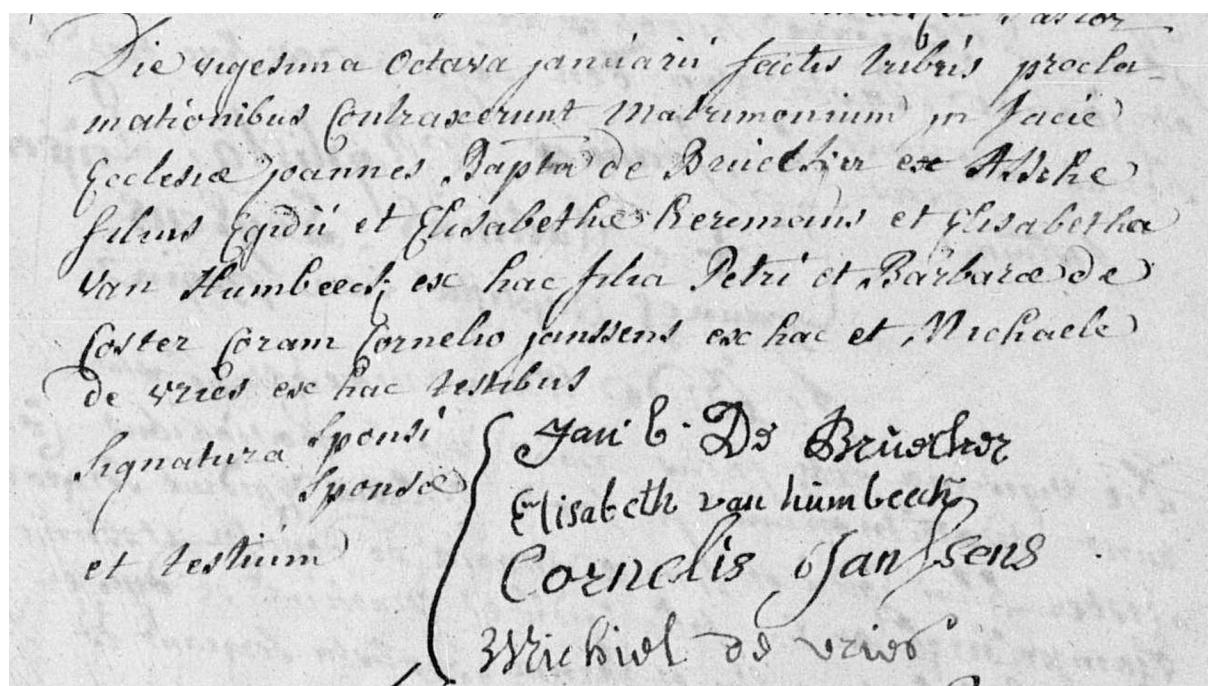 Pastor
Die vigesima Octava januarii factis tribus procla-
mationibus Contraxerunt Matrimonium in facie
Ecclesiæ joannes Bapta de Bruecher ex Assche
filius Egidii et Elisabethæ Keremans et Elisabetha
van Humbeeck ex hac filia Petri et Barbaræ de
Coster Coram Cornelio janssens ex hac et Michaele
de vries ex hac testibus
Signatura Sponsi
Sponsæ
et testium
Jan b. De Bruecher
Elisabeth van humbeeck
Cornelis Janssens
Michiel de vries